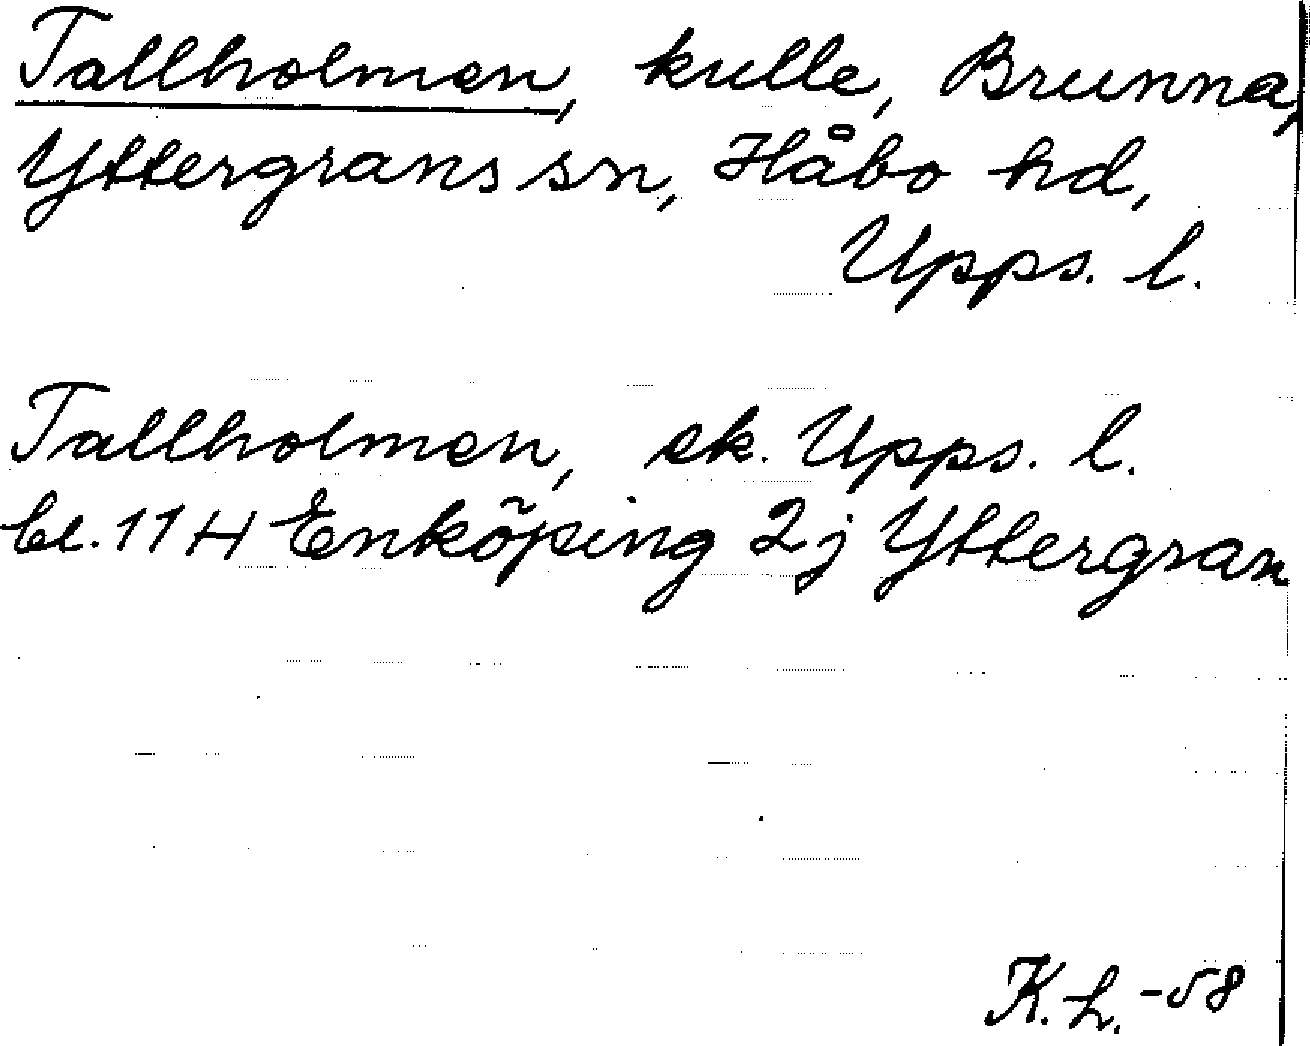 Tallholmen, kulle, Brunna,
Yttergrans sn, Håbo hd,
Upps. l.
Tallholmen, ek. Upps. l.
bl. 11 H Enköping 2j Yttergran
K. h. -58